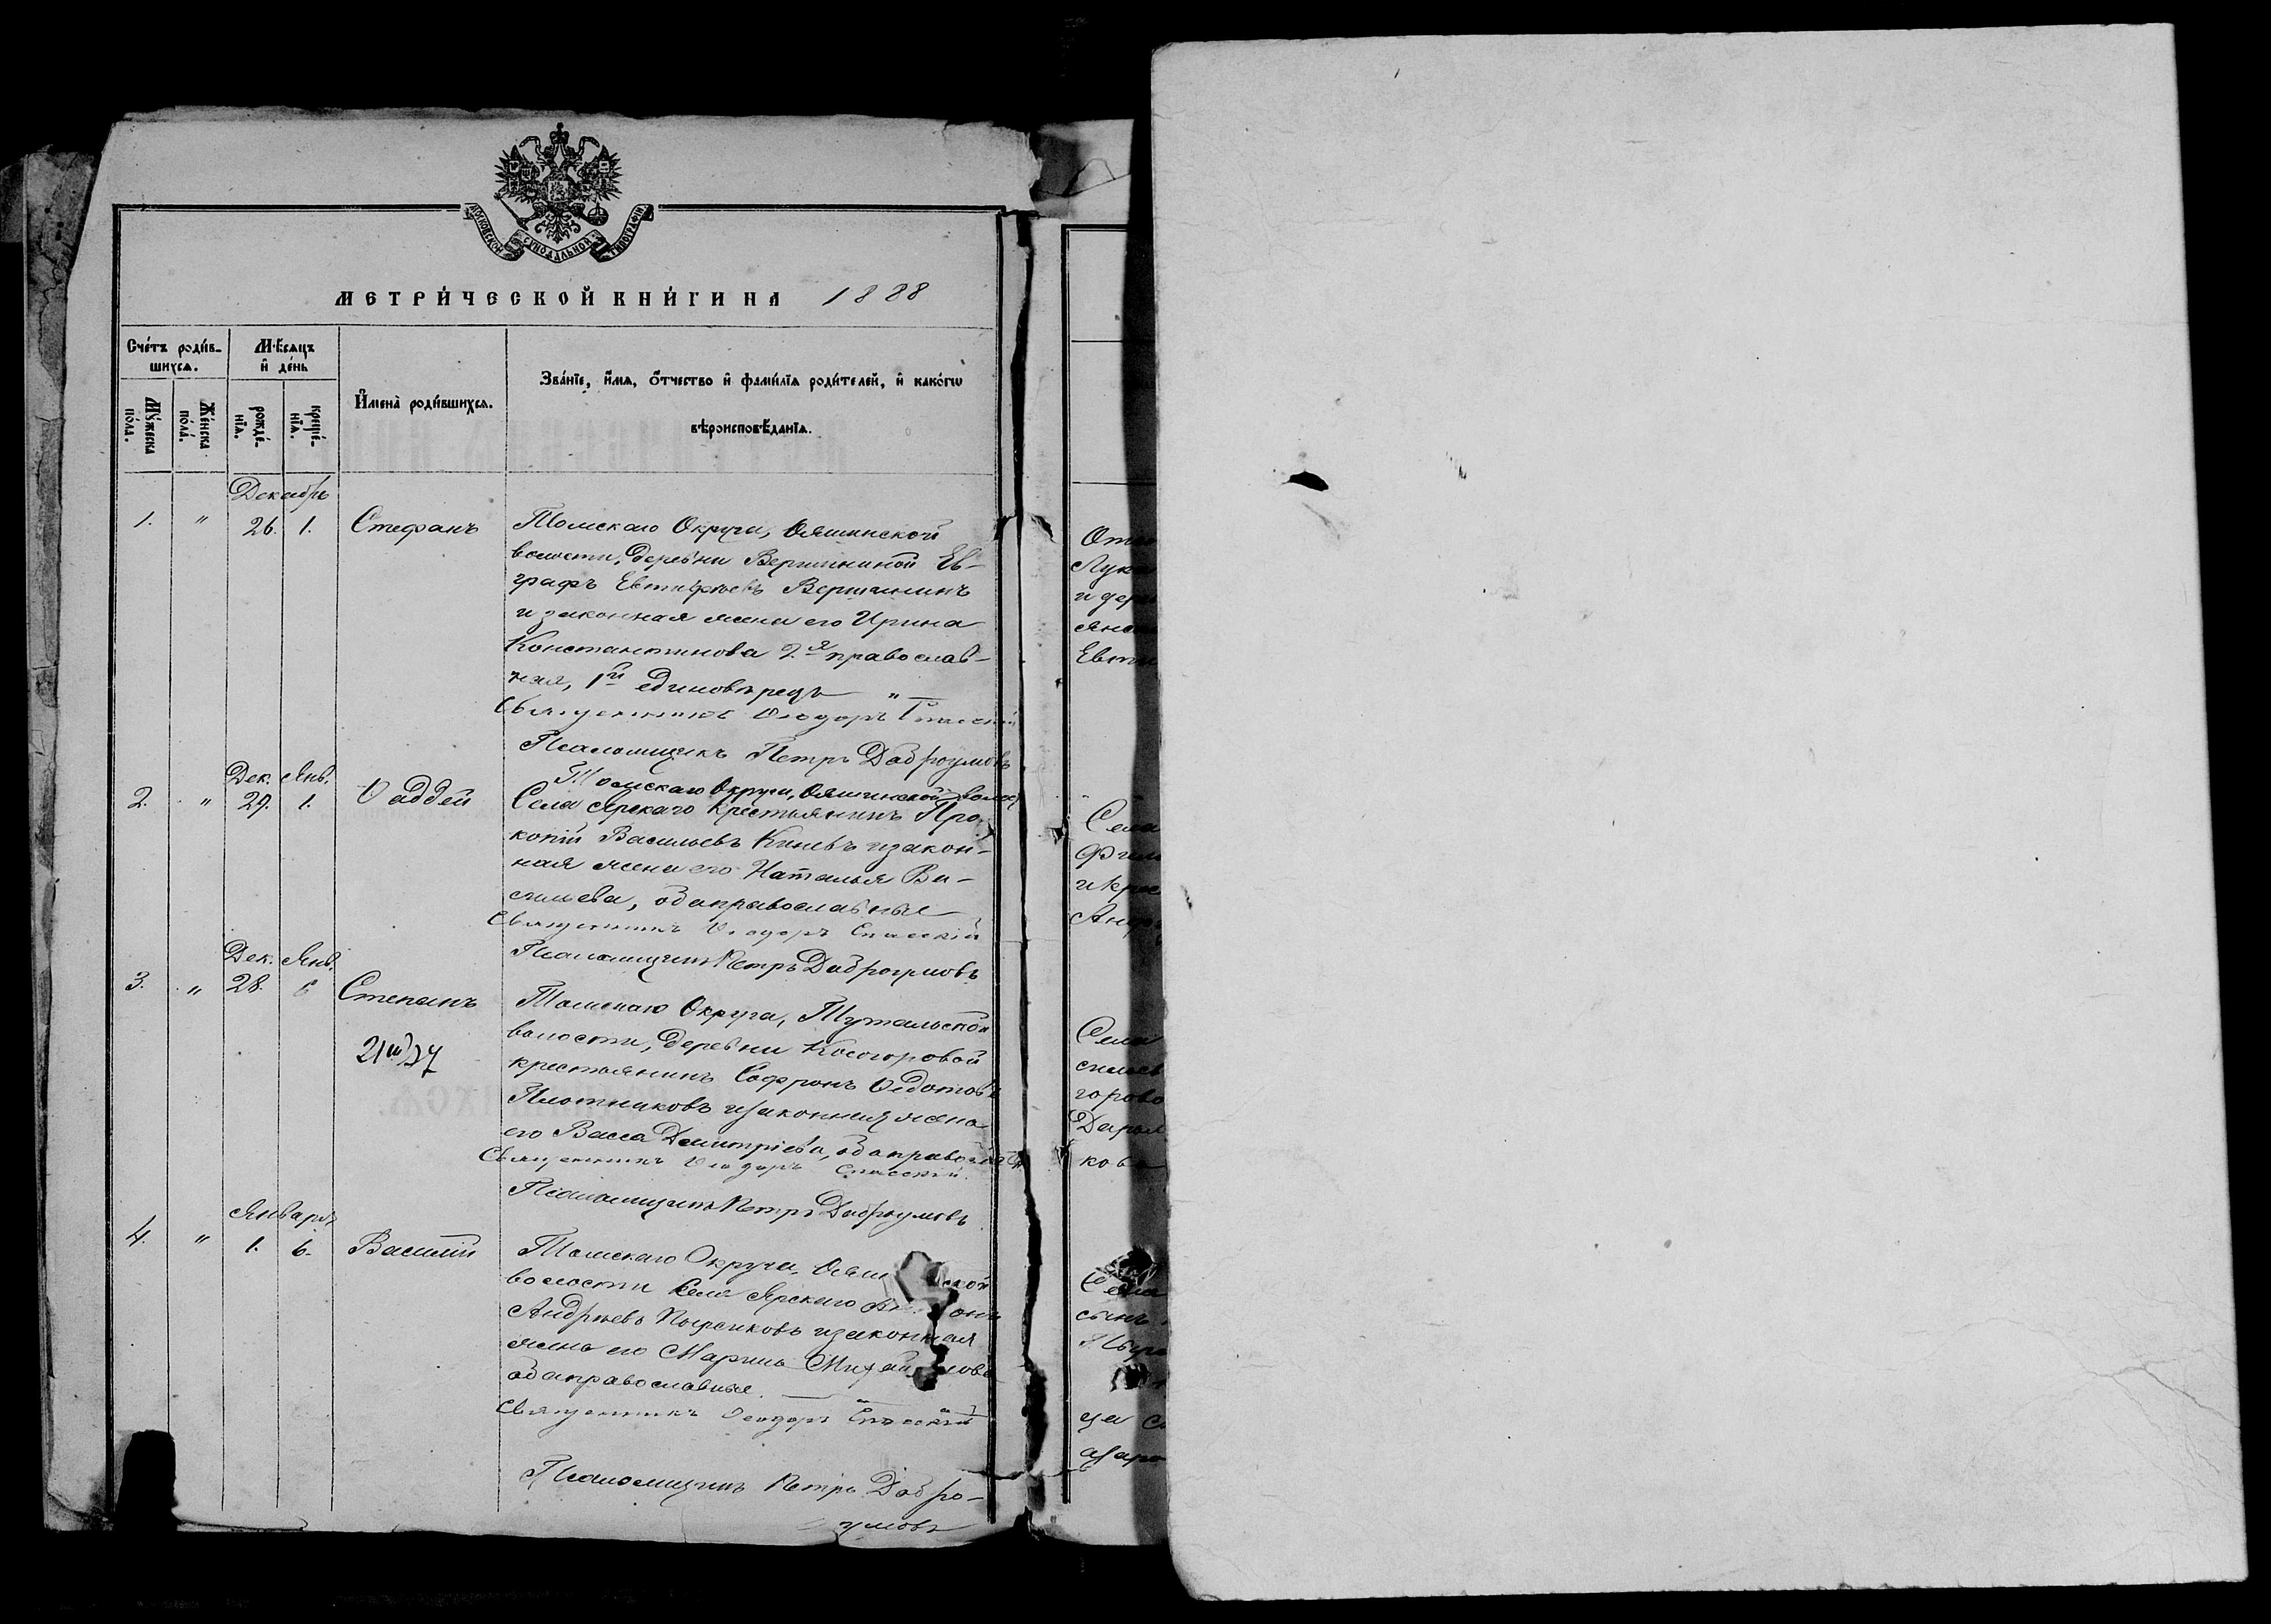 МОСКОВСКОЙ СѴНОДАЛЬНОЙ ТИПОГРАФІИ
МЕТРИ́ЧЕСКОЙ КНИ́ГИ НА 1888
Сче́тъ роди́в-
шихсѧ.
Мѣ́сѧцъ
и҆ де́нь
И҆мена̀ роди́вшихсѧ.
Зва́нїе, и҆́мѧ, ѻ҆́тчество и҆ фами́лїѧ роди́телей, и҆ како́гѡ
вѣроисповѣ́данїѧ.
Му́жеска
по́ла.
Же́нска
по́ла.
рожде́-
нїѧ.
креще́-
нїѧ.
Декабрь
1. " 26. 1. Стефанъ
Томскаго Округа, Ояшинской
волости, деревни Вершининой Ев-
графъ Евтифѣевъ Вершининъ
и законная жена его Ирина
Константинова 2.я православ-
ная, 1й единовѣрецъ "
Священникъ Ѳеодоръ Спасскій
Псаломщикъ Петръ Доброумовъ
Дек. Янв.
2. " 29. 1. Ѳаддей
Томскаго Округа, Ояшинской волос
Села Ярскаго крестьянинъ Про-
копій Васильевъ Киневъ и закон-
ная жена его Наталья Ва-
сильева, оба православные
Священникъ Ѳеодоръ Спасскій
Псаломщикъ Петръ Доброумовъ
Дек. Янв.
3. " 28. 6 Степанъ
Томскаго Округа, Тутальской
волости, деревни Косогоровой
крестьянинъ Софронъ Ѳедотовъ
Плотниковъ и законная жена
его Васса Димитріева, оба правосл
Священникъ Ѳеодоръ Спасскій.
Псаломщикъ Петръ Доброумовъ
Январь
4. " 1. 6. Василій
Томскаго Округа, Ояш ской
волости Села Ярскаго онъ
Андреевъ и законная
жена его Марина Михайлова
оба православные.
Священникъ Ѳеодоръ Спасскій
Псаломщикъ Петръ Добро-
умовъ
Лука
и дере
Евти
Села
Фили
и крес
Андр
Села
сильев
горово
Дарья
кова
Села
сынъ